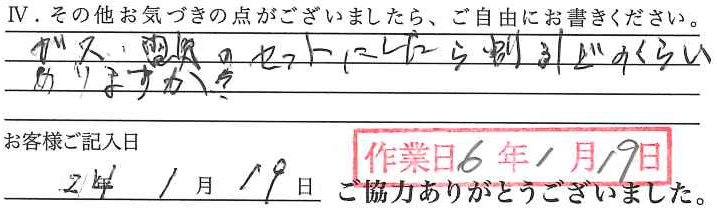 Ⅳ.その他お気づきの点がございましたら、ご自由にお書きください。
ガス、電気のセットにしたら割引どのくらい
ありますか?
お客様ご記入日
作業日6年1月19日
24年 1月19日 ご協力ありがとうございました。